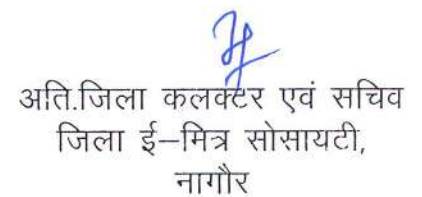 अति.जिला कलक्टर एवं सचिव
जिला ई–मित्र सोसायटी,
नागौर